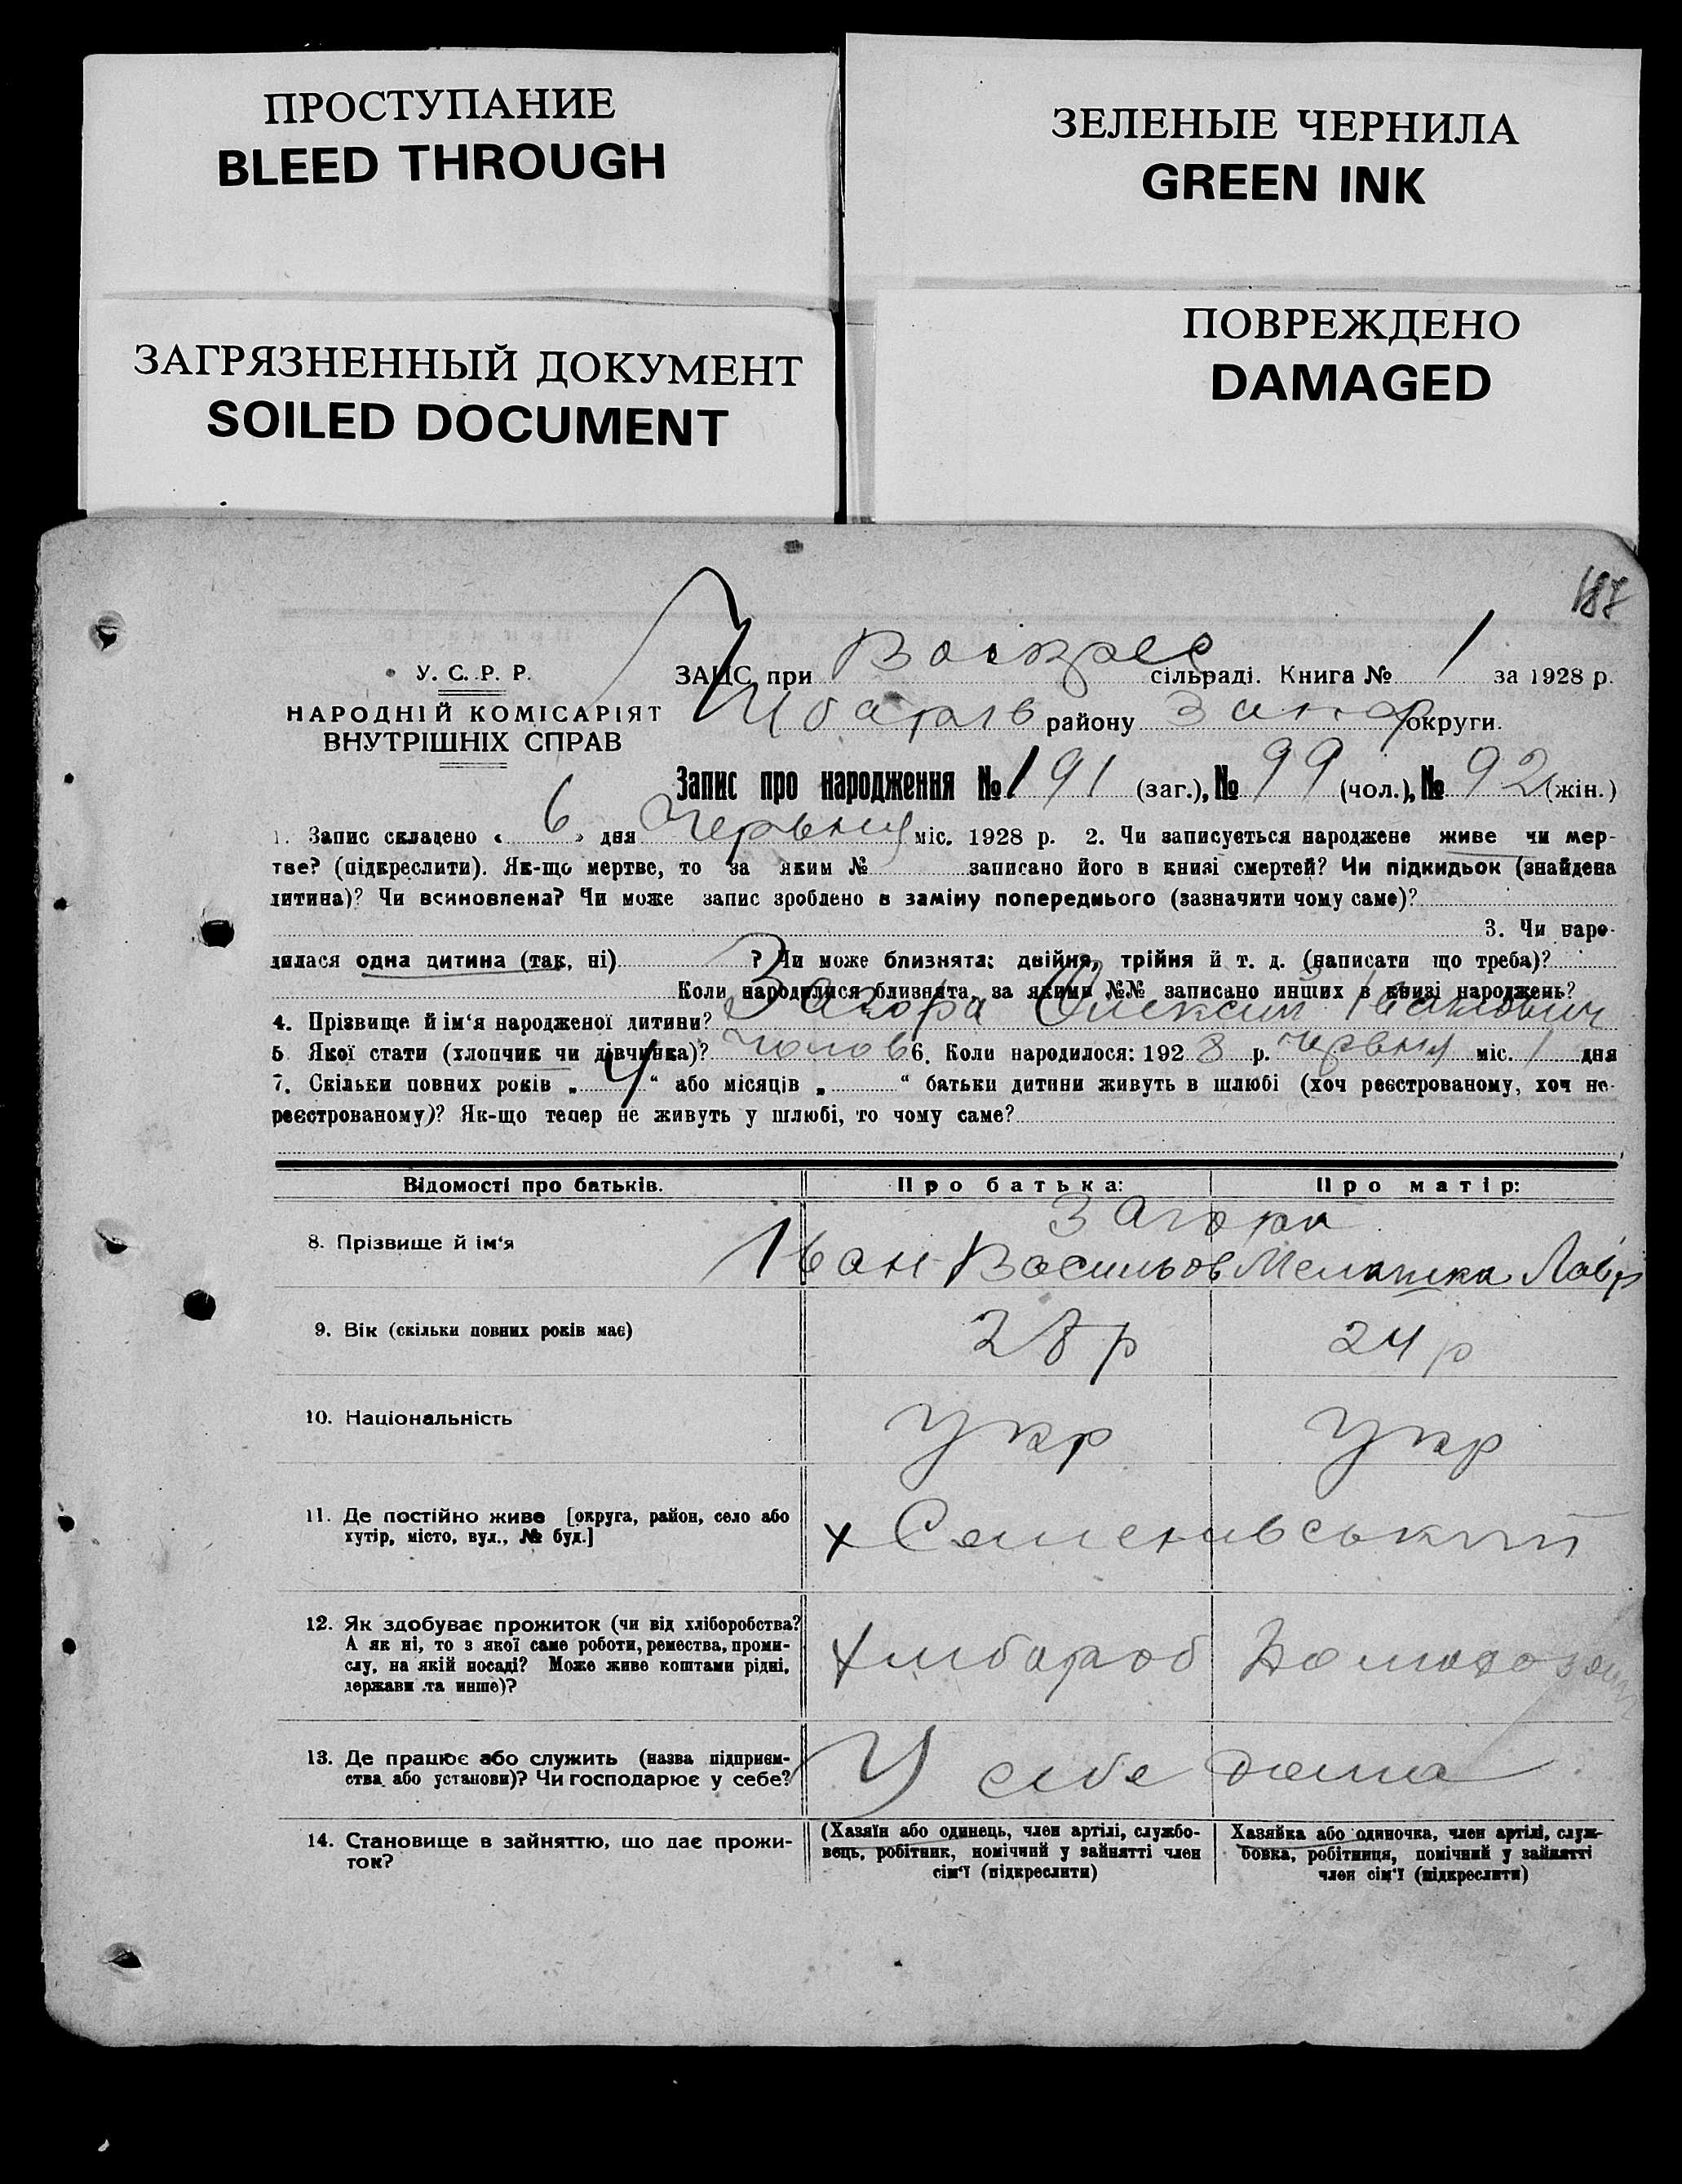 ПРОСТУПАНИЕ
BLEED THROUGH
ЗЕЛЕНЫЕ ЧЕРНИЛА
GREEN INK
ЗАГРЯЗНЕННЫЙ ДОКУМЕНТ
SOILED DOCUMENT
ПОВРЕЖДЕНО
DAMAGED
187
У. С. Р. Р.
НАРОДНІЙ КОМІСАРІЯТ
ВНУТРІШНІХ СПРАВ
ЗАЦС при Воскрес сільраді. Книга № 1 за 1928 р.
району Запор округи.
Запис про народження № 191 (заг.), № 99 (чол.), № 92 (жін.)
1. Запис складено « 6 » дня Червня міс. 1928 р. 2. Чи записується народжене живе чи мер-
тве? (підкреслити). Як-що мертве, то за яким № записано його в книзі смертей? Чи підкидьок (знайдена
дитина)? Чи всиновлена? Чи може запис зроблено в заміну попереднього (зазначити чому саме)?
3. Чи наро-
дилася одна дитина (так, ні) ? Чи може близнята: двійня, трійня й т. д. (написати що треба)?
Коли народилися близнята, за якими №№ записано инших в книзі народжень?
4. Прізвище й ім'я народженої дитини? Загора Олексій Іванович
5 Якої стати (хлопчик чи дівчинка)? чолов 6. Коли народилося: 1928 р. червня міс. 1 дня
7. Скільки повних років „ 4 “ або місяців „ “ батьки дитини живуть в шлюбі (хоч реєстрованому, хоч не-
реєстрованому)? Як-що тепер не живуть у шлюбі, то чому саме?
Відомості про батьків.
Про батька:
Про матір:
8. Прізвище й ім'я
Загора
Іван Васильов Мелашка Лавр
9. Вік (скільки повних років має)
28 р
24 р
10. Національність
Укр
Укр
11. Де постійно живе [округа, район, село або
хутір, місто, вул., № буд.]
х Семенивський
12. Як здобуває прожиток (чи від хліборобства?
А як ні, то з якої саме роботи, ремества, проми-
слу, на якій посаді? Може живе коштами рідні,
держави та инше)?
Хлибороб
13. Де працює або служить (назва підприєм-
ства або установи)? Чи господарює у себе?
У себе дома
14. Становище в зайняттю, що дає прожи-
ток?
(Хазяїн або одинець, член артілі, службо-
вець, робітник, помічний у зайнятті член
сім'ї (підкреслити)
Хазяйка або одиночка, член артілі, служ-
бовка, робітниця, помічний у зайнятті
член сім'ї (підкреслити)